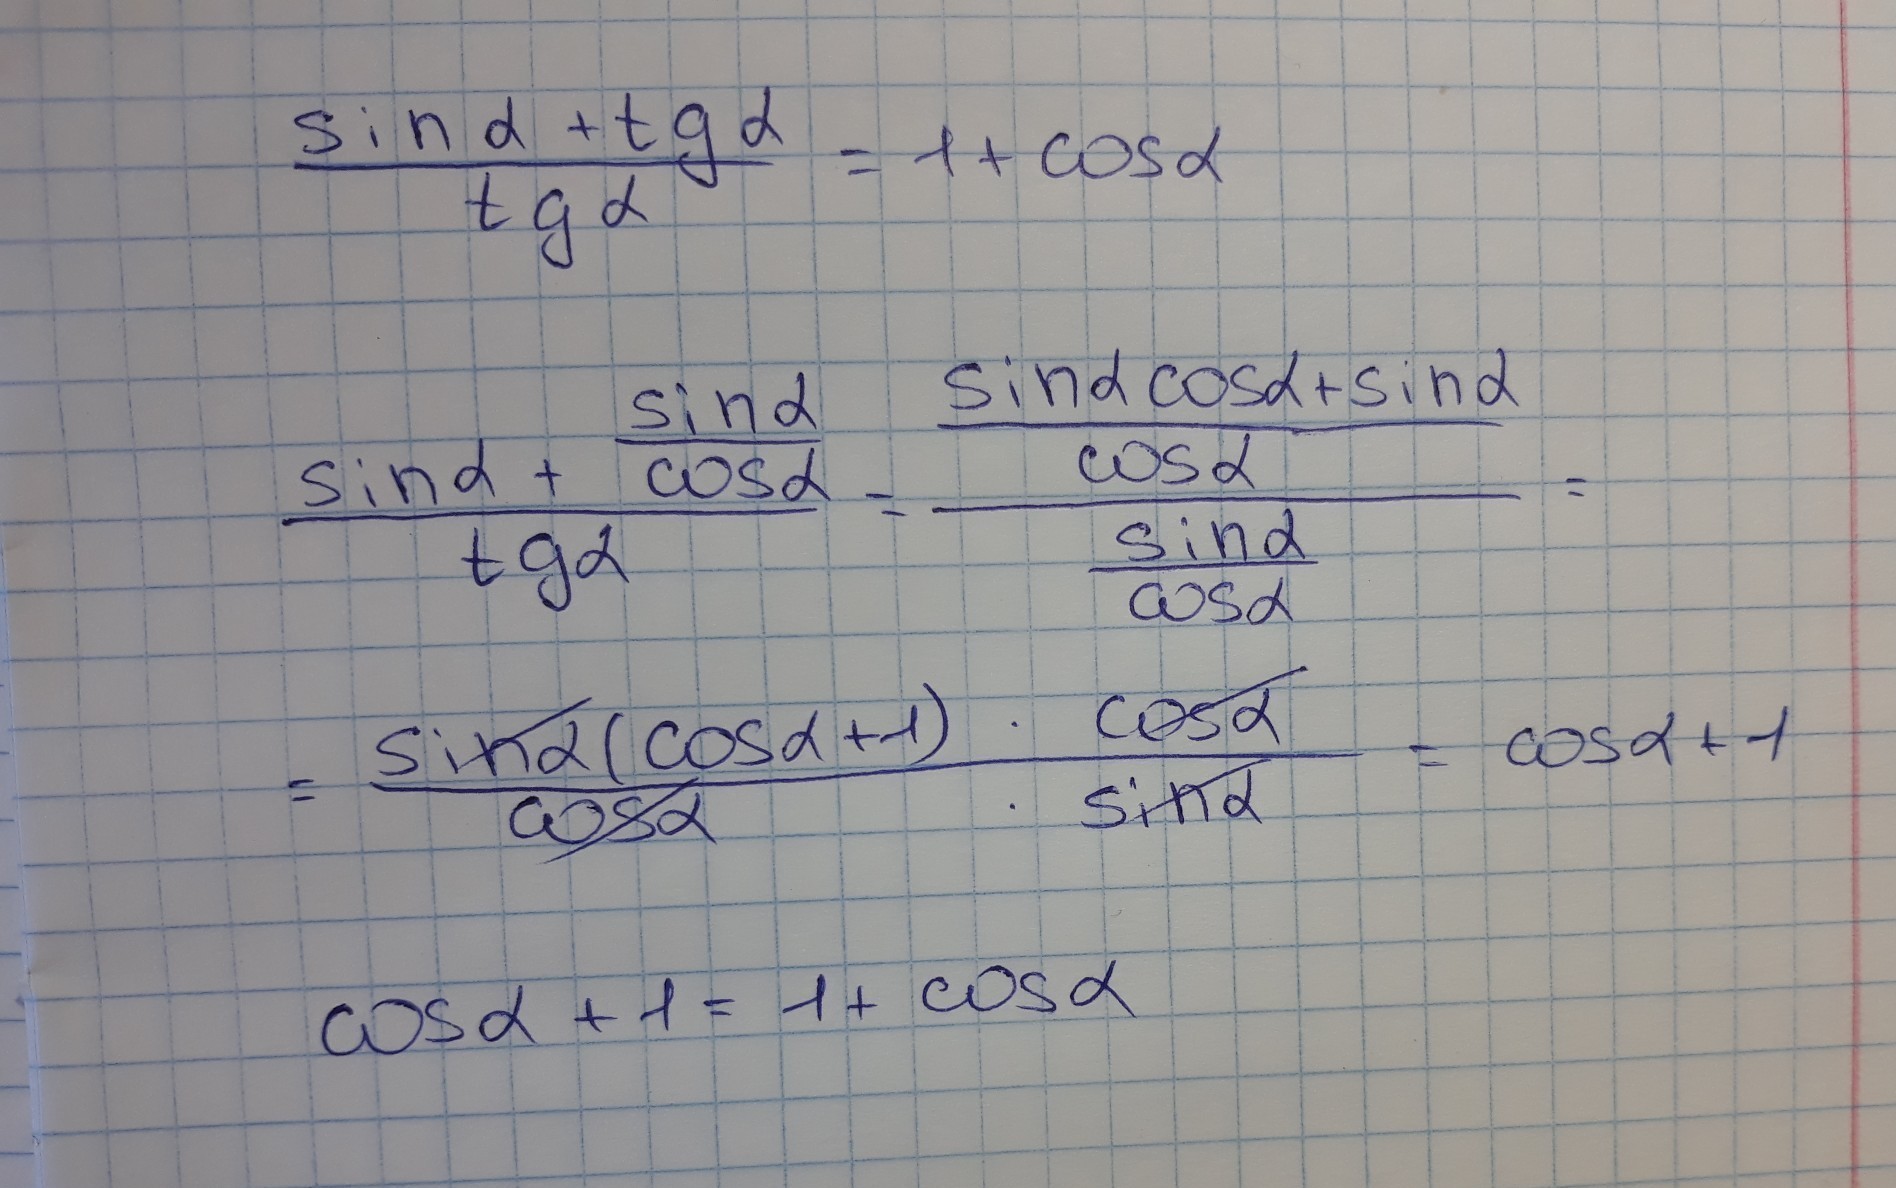 (sin α + tg α) / tg α = 1 + cos α
(sin α + sin α / cos α) / tg α = ((sin α cos α + sin α) / cos α) / (sin α / cos α) =
= sin α (cos α + 1) / cos α · cos α / sin α = cos α + 1
cos α + 1 = 1 + cos α